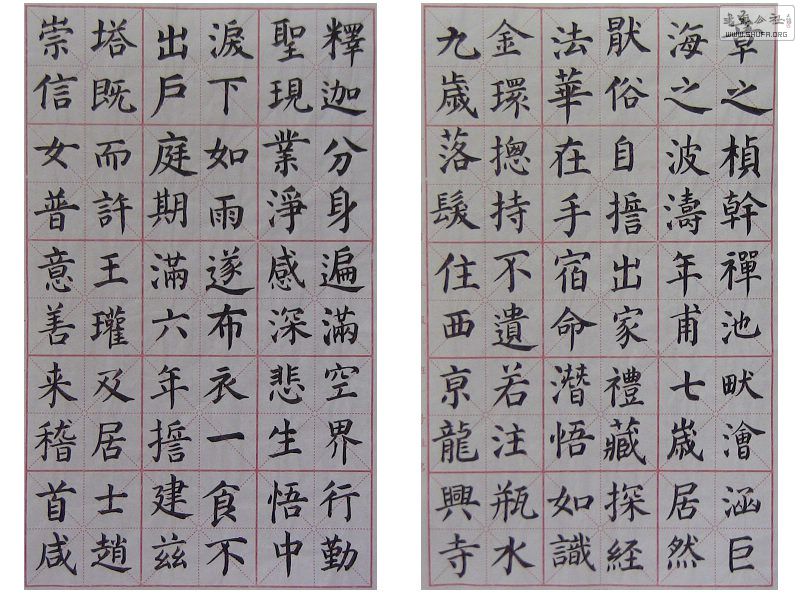 章之楨幹禪池畎澮涵巨
海之波濤年甫七嵗居然
猒俗自誓出家禮藏探經
法華在手宿命潛悟如識
金環揔持不遺若注瓶水
九歲落髮住西亰龍興寺
釋迦分身遍滿空界行勤
聖現業淨感深悲生悟中
淚下如雨遂布衣一食不
出戶庭期滿六年誓建茲
塔既而許王瓘及居士趙
崇信女普意善来稽首咸
WWW.SHUFA.ORG